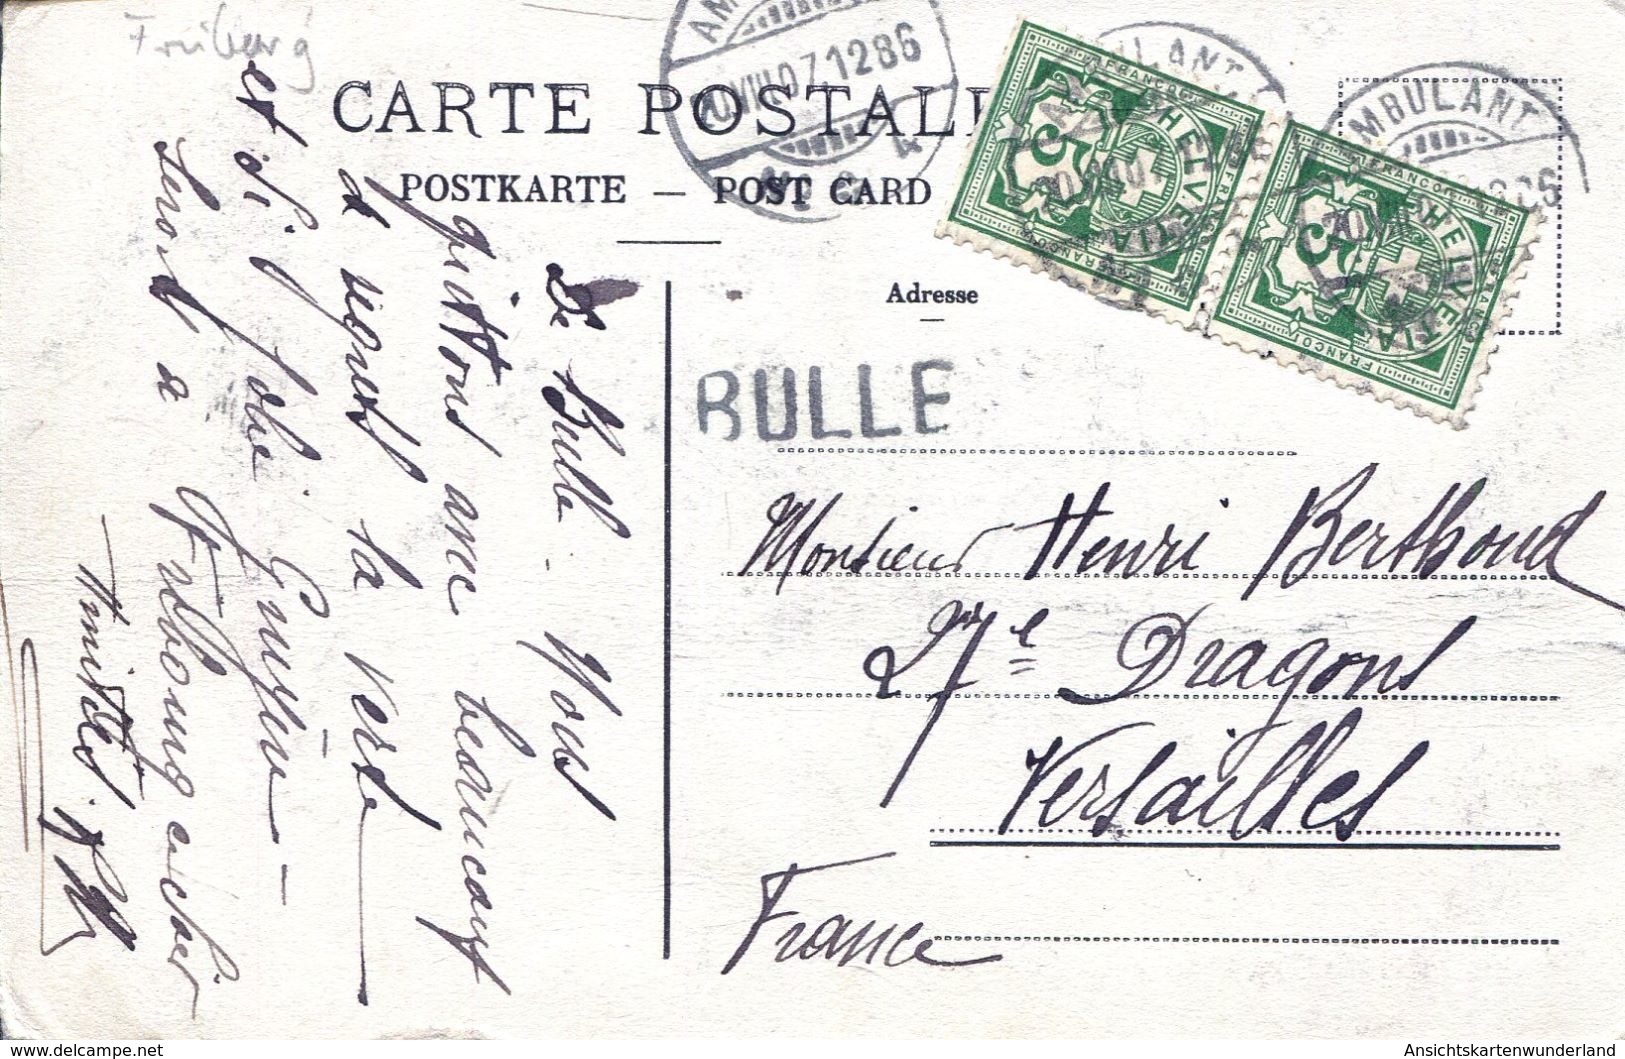 Freiburg
CARTE POSTALE
POSTKARTE — POST CARD
Adresse
AMBULANT
AMBULANT
10.VIII.07.1286
HELVETIA
FRANCO
5
HELVETIA
FRANCO
5
BULLE
Monsieur Henri Berthoud
27e Dragons
Versailles
France
De Bulle. Nous
quittons avec beaucoup
de regrets la verte
et si jolie Gruyère
Amitiés.
www.delcampe.net
Ansichtskartenwunderland